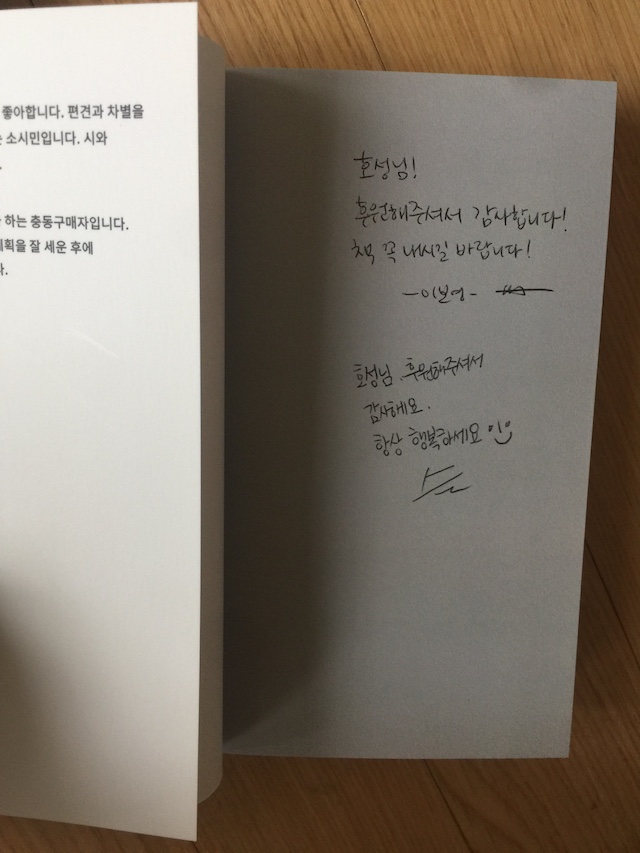 좋아합니다. 편견과 차별을
소시민입니다. 시와
하는 충동구매자입니다.
계획을 잘 세운 후에
다.
호성님!
후원해주셔서 감사합니다!
책 꼭 내시길 바랍니다!
-이보영-
호성님, 후원해주셔서
감사해요.
항상 행복하세요